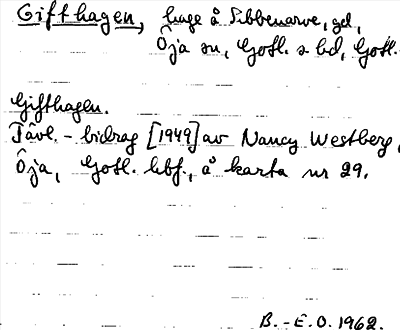 Gifthagen, hage å Sibbenarve, gd,
Öja sn, Gotl. s hd, Gotl.
Gifthagen.
Tävl.-bidrag [1949] av Nancy Westberg,
Öja, Gotl. hbf., å karta nr 29.
B.-E.O. 1962.